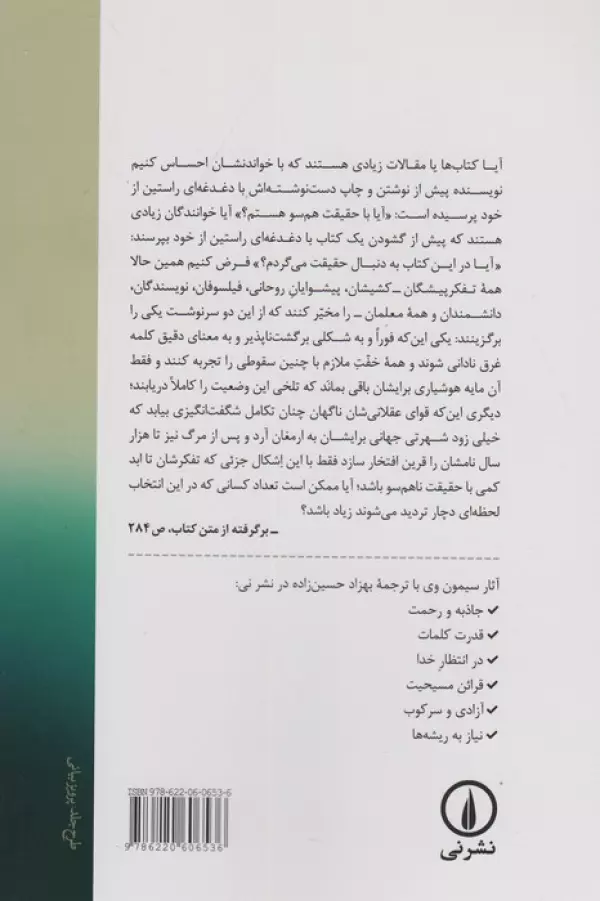 آیا کتاب‌ها یا مقالات زیادی هستند که با خواندنشان احساس کنیم
نویسنده پیش از نوشتن و چاپ دست‌نوشته‌اش با دغدغه‌ای راستین از
خود پرسیده است: «آیا با حقیقت هم‌سو هستم؟» آیا خوانندگان زیادی
هستند که پیش از گشودن یک کتاب با دغدغه‌ای راستین از خود بپرسند:
«آیا در این کتاب به دنبال حقیقت می‌گردم؟» فرض کنیم همین حالا
همهٔ تفکرپیشگان ــ کشیشان، پیشوایانِ روحانی، فیلسوفان، نویسندگان،
دانشمندان و همهٔ معلمان ــ را مخیّر کنند که از این دو سرنوشت یکی را
برگزینند: یکی این‌که فوراً و به شکلی برگشت‌ناپذیر و به معنای دقیق کلمه
غرق نادانی شوند و همهٔ خفّتِ ملازم با چنین سقوطی را تجربه کنند و فقط
آن مایه هوشیاری برایشان باقی بماند که تلخی این وضعیت را کاملاً دریابند؛
دیگری این‌که قوای عقلانی‌شان ناگهان چنان تکامل شگفت‌انگیزی بیابد که
خیلی زود شهرتی جهانی برایشان به ارمغان آرد و پس از مرگ نیز تا هزار
سال نامشان را قرین افتخار سازد فقط با این اِشکال جزئی که تفکرشان تا ابد
کمی با حقیقت ناهم‌سو باشد؛ آیا ممکن است تعداد کسانی که در این انتخاب
لحظه‌ای دچار تردید می‌شوند زیاد باشد؟
ــ برگرفته از متن کتاب، ص ۲۸۴
آثار سیمون وی با ترجمهٔ بهزاد حسین‌زاده در نشر نی:
✓ جاذبه و رحمت
✓ قدرت کلمات
✓ در انتظارِ خدا
✓ قرائن مسیحیت
✓ آزادی و سرکوب
✓ نیاز به ریشه‌ها
طرح جلد: پرویز بیانی
ISBN 978-622-06-0653-6
9 786220 606536
نشرنی